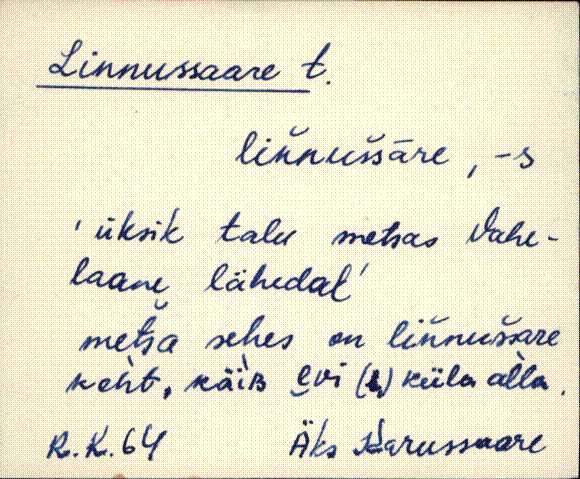 Linnussaare t.
liňnuššāre, -s
'üksik talu metsas Vahe-
laane lähedal'
metša sehes on liňnuššare
keht, käìs evi küla alla.
R.K. 64 Äks Karussaare